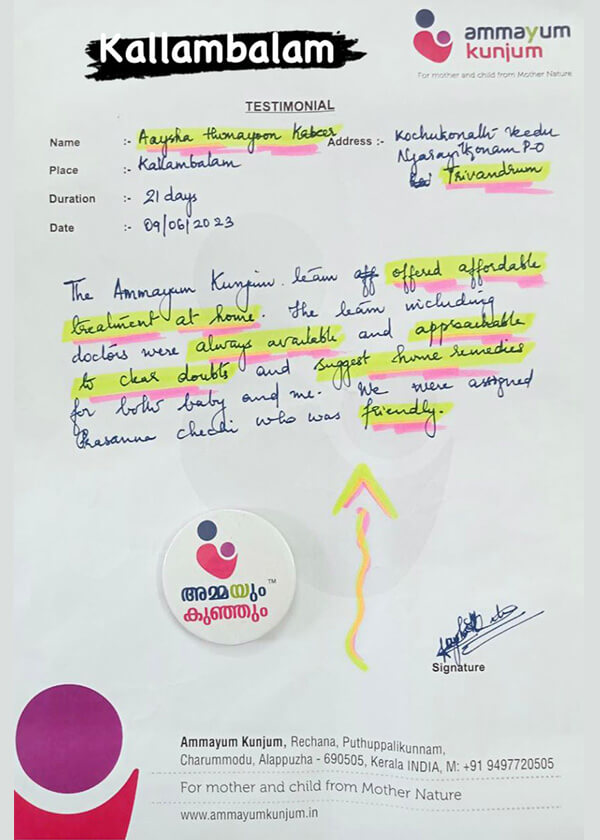 Kallambalam
ammayum
kunjum
For mother and child from Mother Nature
TESTIMONIAL
Name :- Aaysha Humayoon Kabeer
Address :- Kochukonath Veedu
P.O
Trivandrum
Place :- Kallambalam
Duration :- 21 days
Date :- 09/06/2023
The Ammayum Kunjum team offered affordable
treatment at home. The team including
doctors were always available and approachable
to clear doubts and suggest home remedies
for both baby and me. We were assigned
Prasanna chechi who was friendly.
അമ്മയും TM
കുഞ്ഞും
Signature
Ammayum Kunjum, Rechana, Puthuppalikunnam,
Charummodu, Alappuzha - 690505, Kerala INDIA, M: +91 9497720505
For mother and child from Mother Nature
www.ammayumkunjum.in